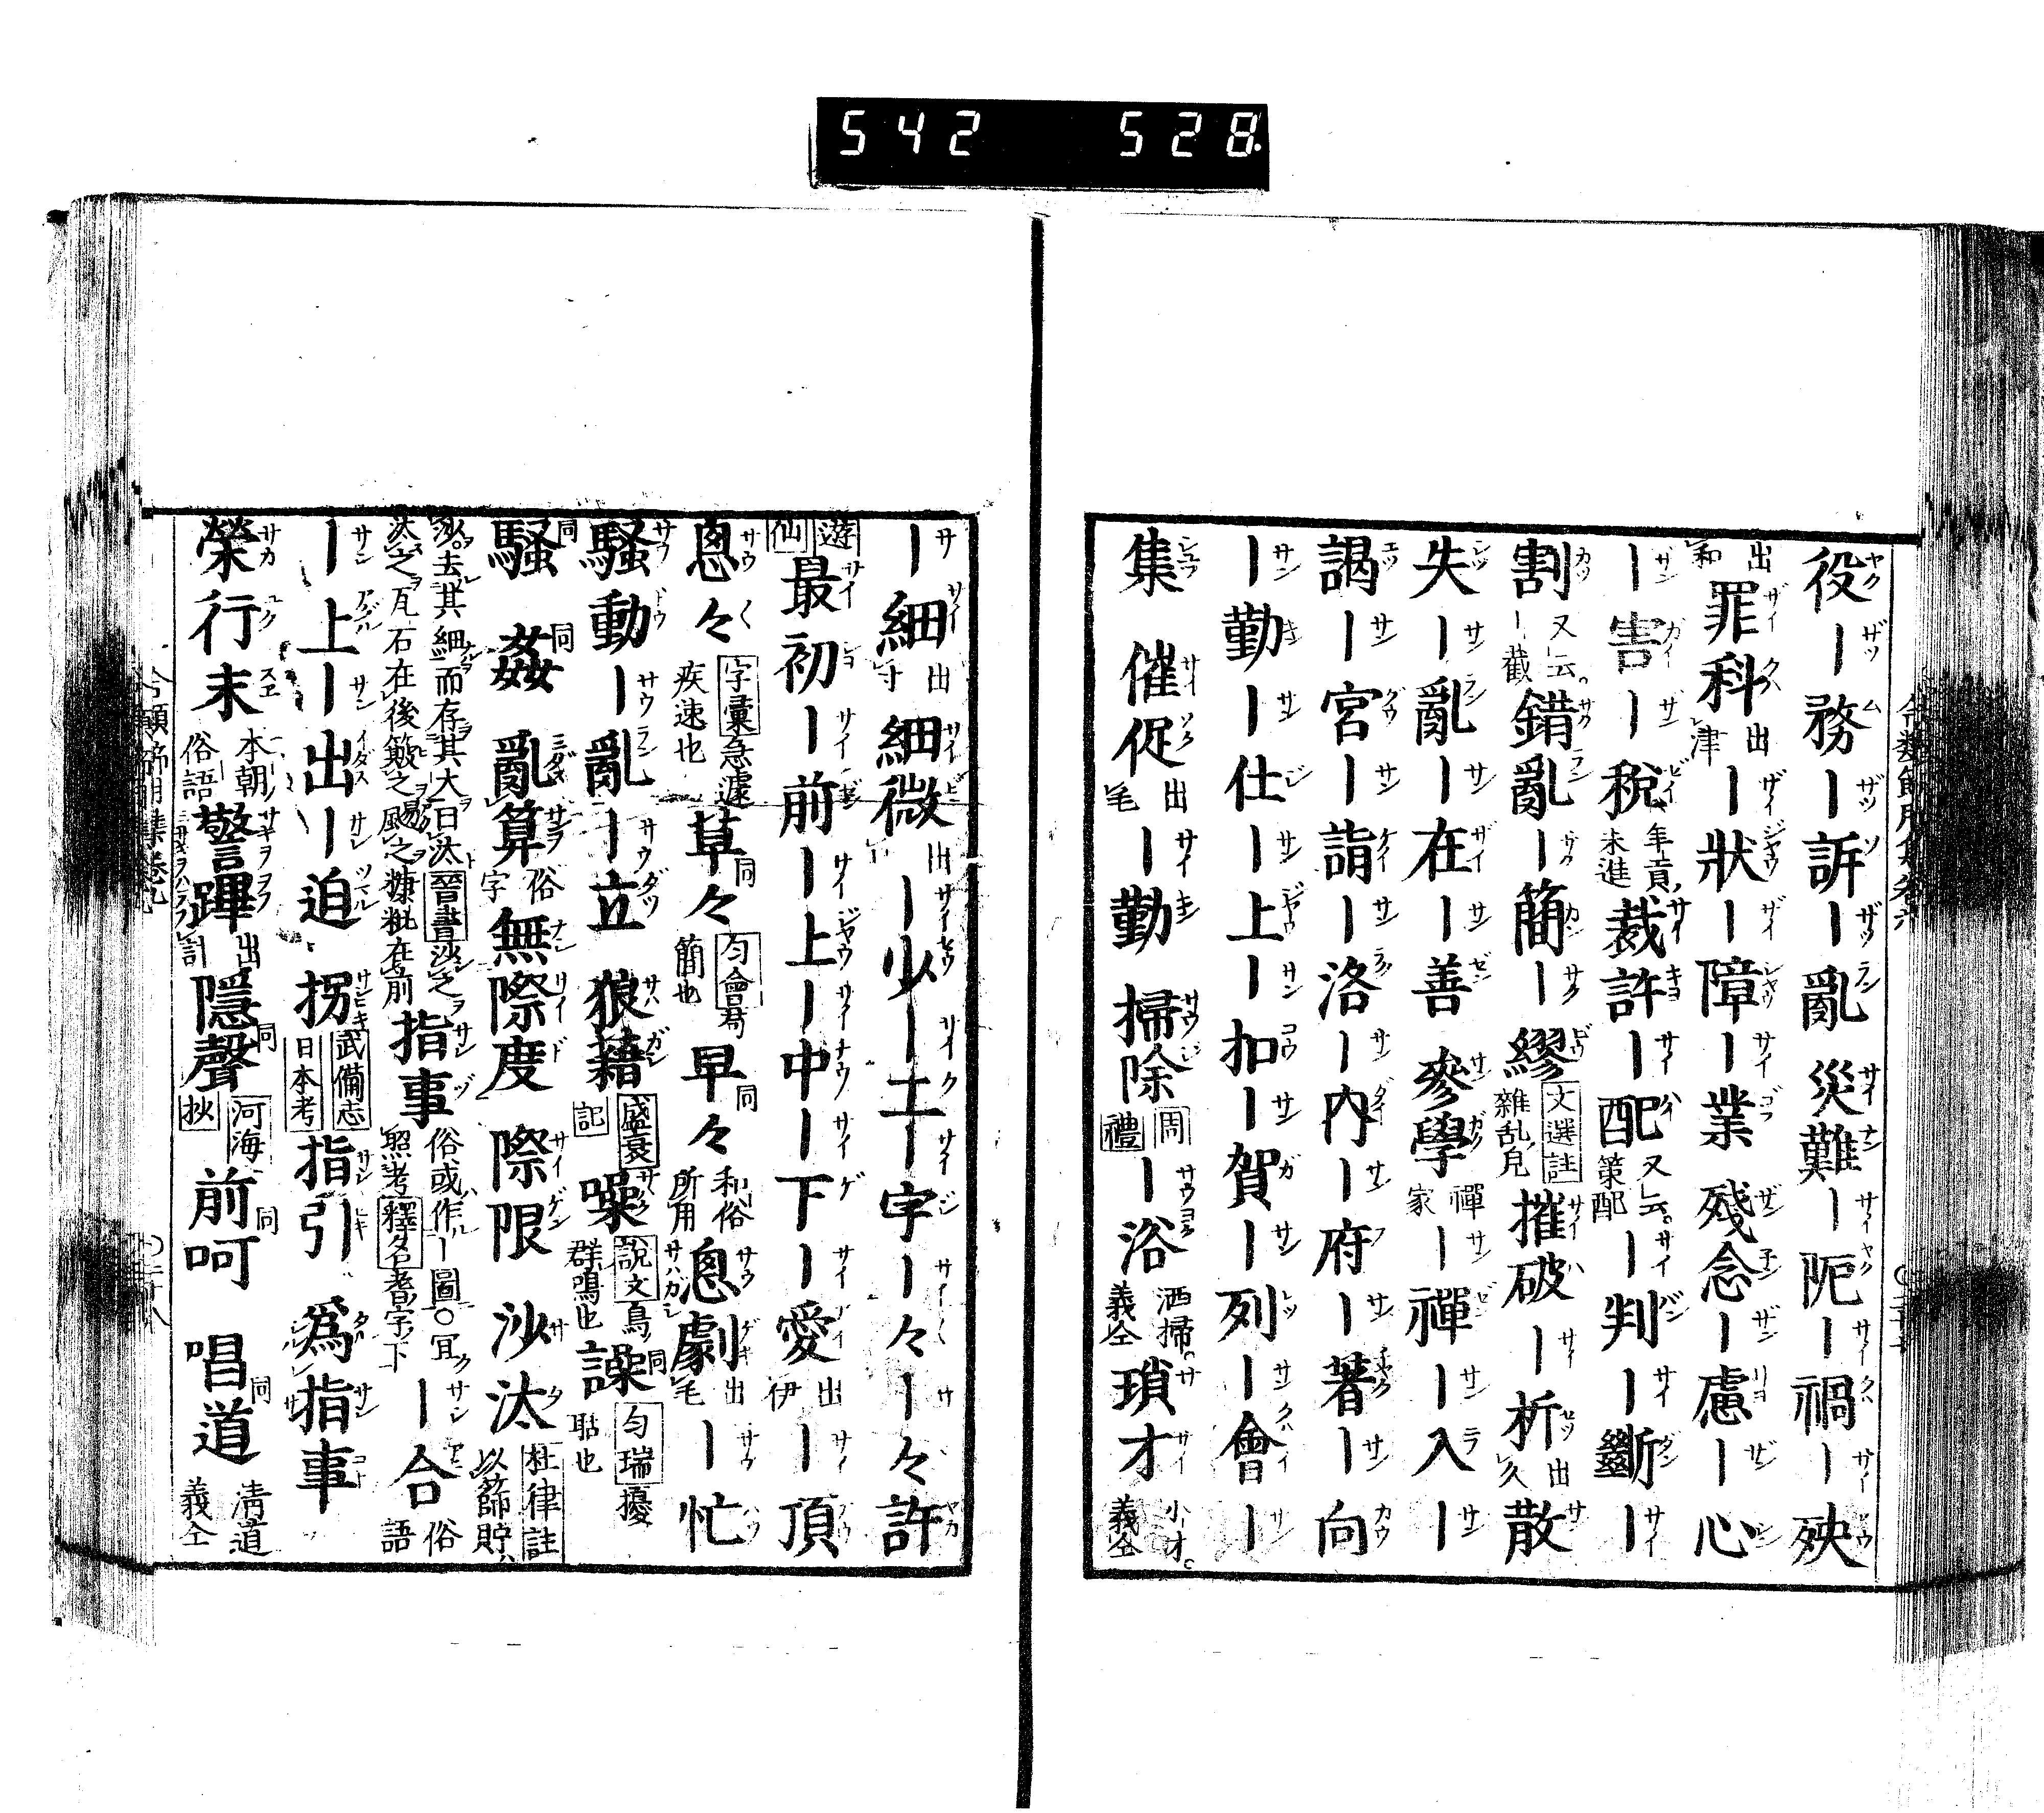 542 528
役ー務ー訴ー亂災難ー阨ー禍ー殃
出和罪科出津ー狀ー障ー業殘念ー慮ー心
ー害ー稅年貢未進裁許ー配又云策配ー判ー斷ー
割又云ー截錯亂ー簡ー繆文選註雜乱皃摧破ー析出久散
失ー亂ー在ー善參學禪家ー禪ー入ー
謁ー宮ー詣ー洛ー內ー府ー著ー向
ー勤ー仕ー上ー扣ー賀ー列ー會ー
集催促出毛ー勤掃除周禮ー浴洒掃義仝瑣才小才義仝
ー細出寸細微出ー少ー工ー字ー々ー々許
遊仙最初ー前ー上ー中ー下ー愛出伊ー頂
悤々字彙急遽疾速也草々同匀會苟簡也早々同和俗所用悤劇出毛ー忙
騷動ー亂ー立狼藉盛衰記噪說文鳥群鳴也譟同匀瑞擾聒也
騷同姦同亂算俗字無際度際限沙汰杜律註以篩貯
沙去其細而存其大曰汰晉書沙之汰之瓦石在後簸之颺之糠粃在前指事俗或作ー圖○冝照考釋名耆字下ー合俗語
ー上ー出ー迫拐武備志日本考指引爲指事
榮行末本朝俗語警蹕出計隱聲同河海抄前呵同唱道同淸道義仝